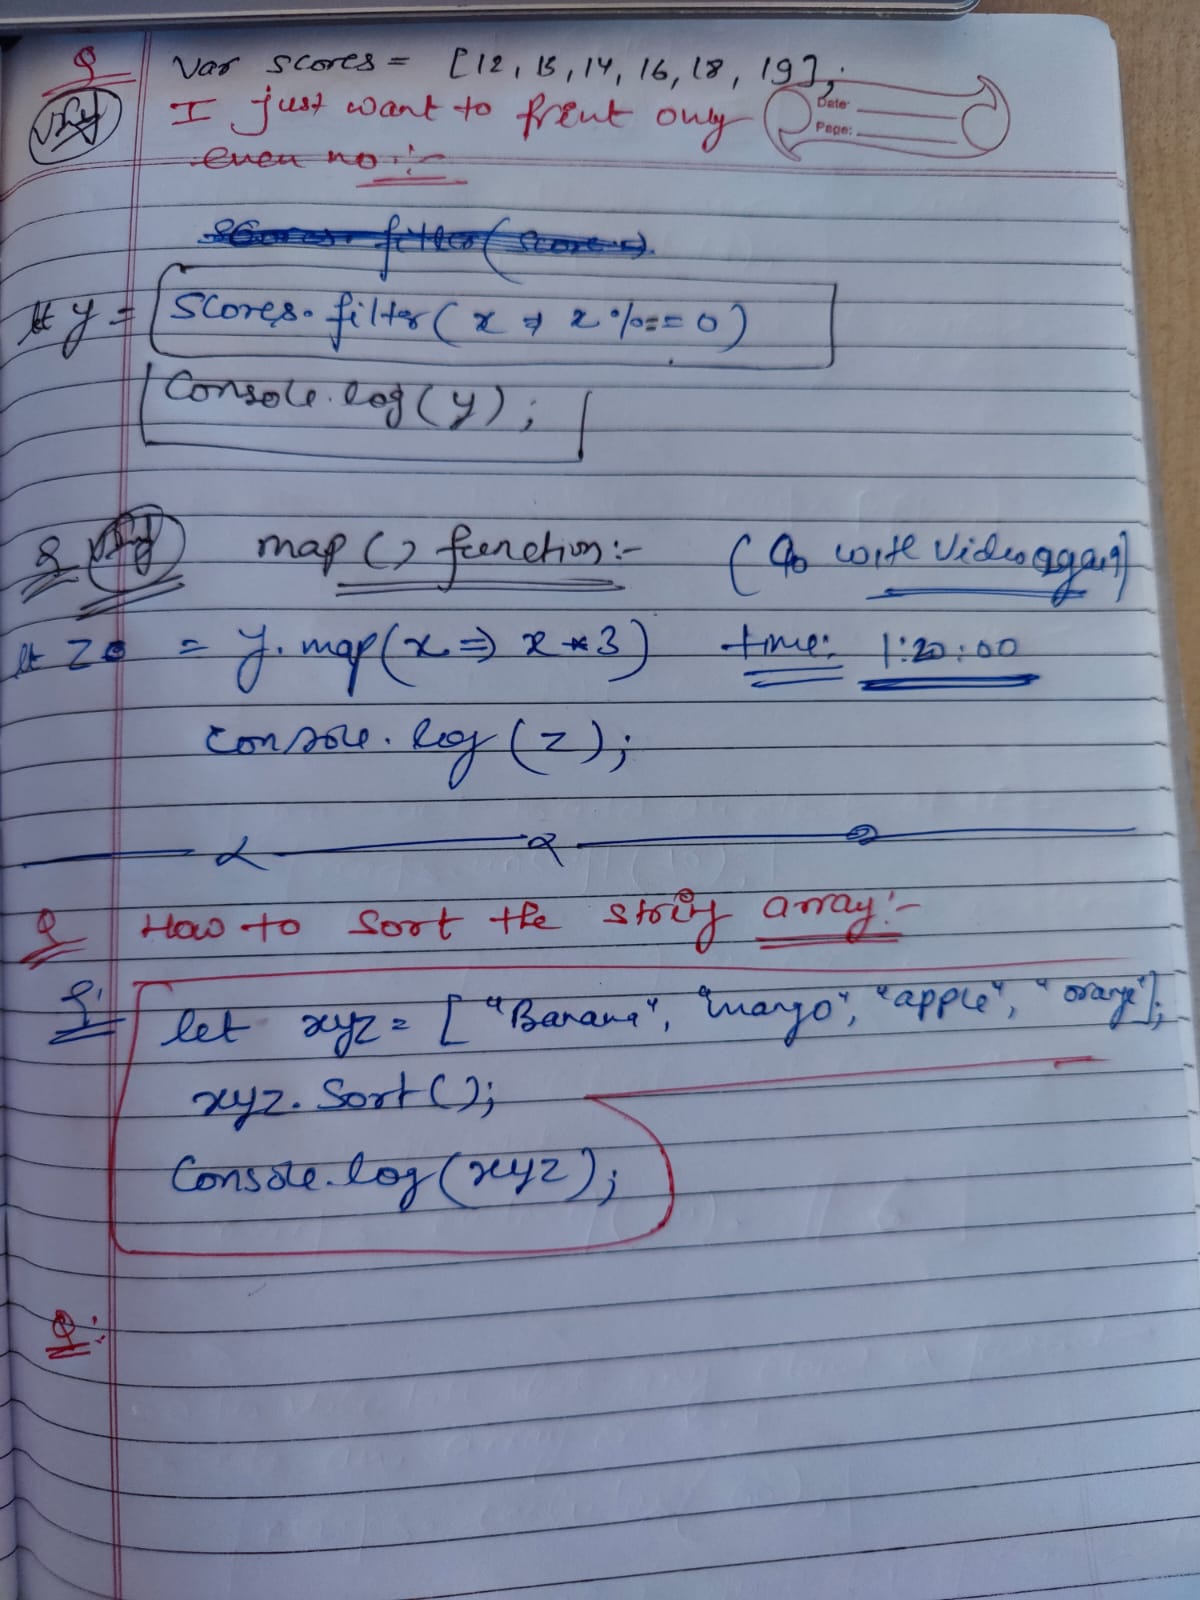 Q
Var scores = [12, 15, 14, 16, 18, 19];
I just want to print only
Date:
Page:
even no:-
scores.filter(scores)
let y = Scores.filter(x => x % == 0)
Console.log(y);
Q map() function:- (Go with video again)
let z = y.map(x => x * 3) time: 1:20:00
console.log(z);
Q How to Sort the string array:-
let xyz = ["Banana", "mango", "apple", "orange"];
xyz.Sort();
Console.log(xyz);
Q: